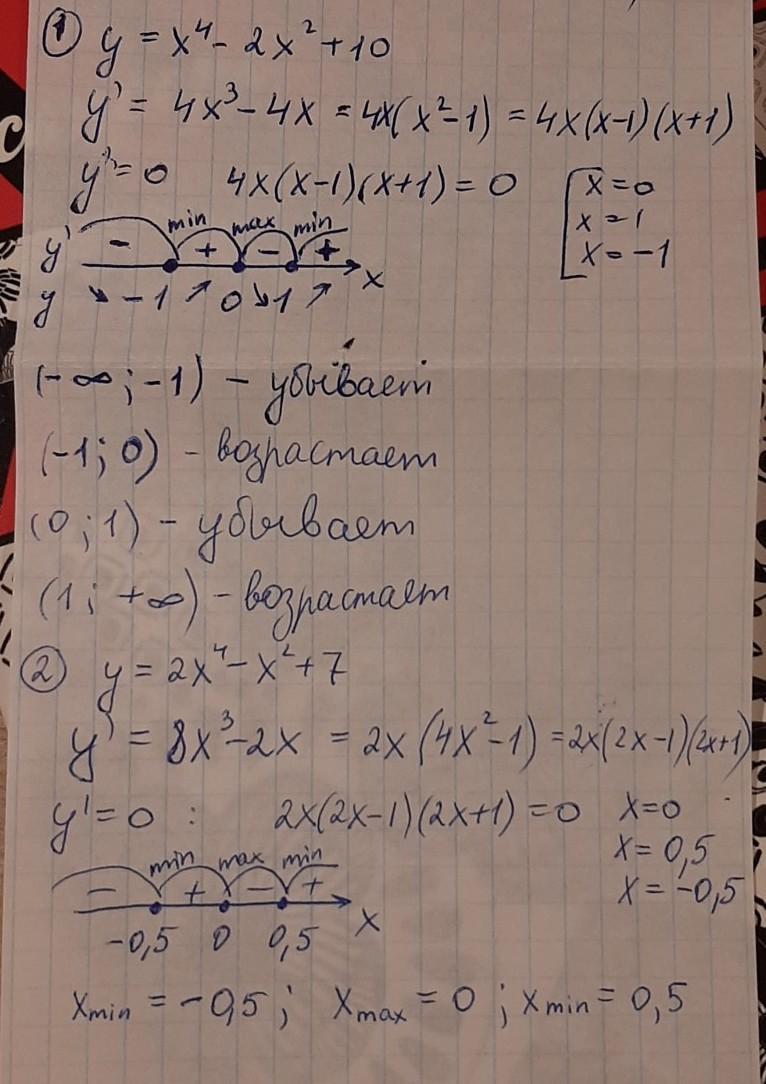 ① y = x⁴ - 2x² + 10
y' = 4x³ - 4x = 4x(x² - 1) = 4x(x-1)(x+1)
y' = 0 4x(x-1)(x+1) = 0 [ x = 0
x = 1
x = -1
min max min
y' - + - + x
y ↘ -1 ↗ 0 ↘ 1 ↗
(-∞; -1) - убывает
(-1; 0) - возрастает
(0; 1) - убывает
(1; +∞) - возрастает
② y = 2x⁴ - x² + 7
y' = 8x³ - 2x = 2x(4x² - 1) = 2x(2x-1)(2x+1)
y' = 0 : 2x(2x-1)(2x+1) = 0 x = 0
x = 0,5
x = -0,5
min max min
- + - + x
-0,5 0 0,5
xmin = -0,5; xmax = 0; xmin = 0,5